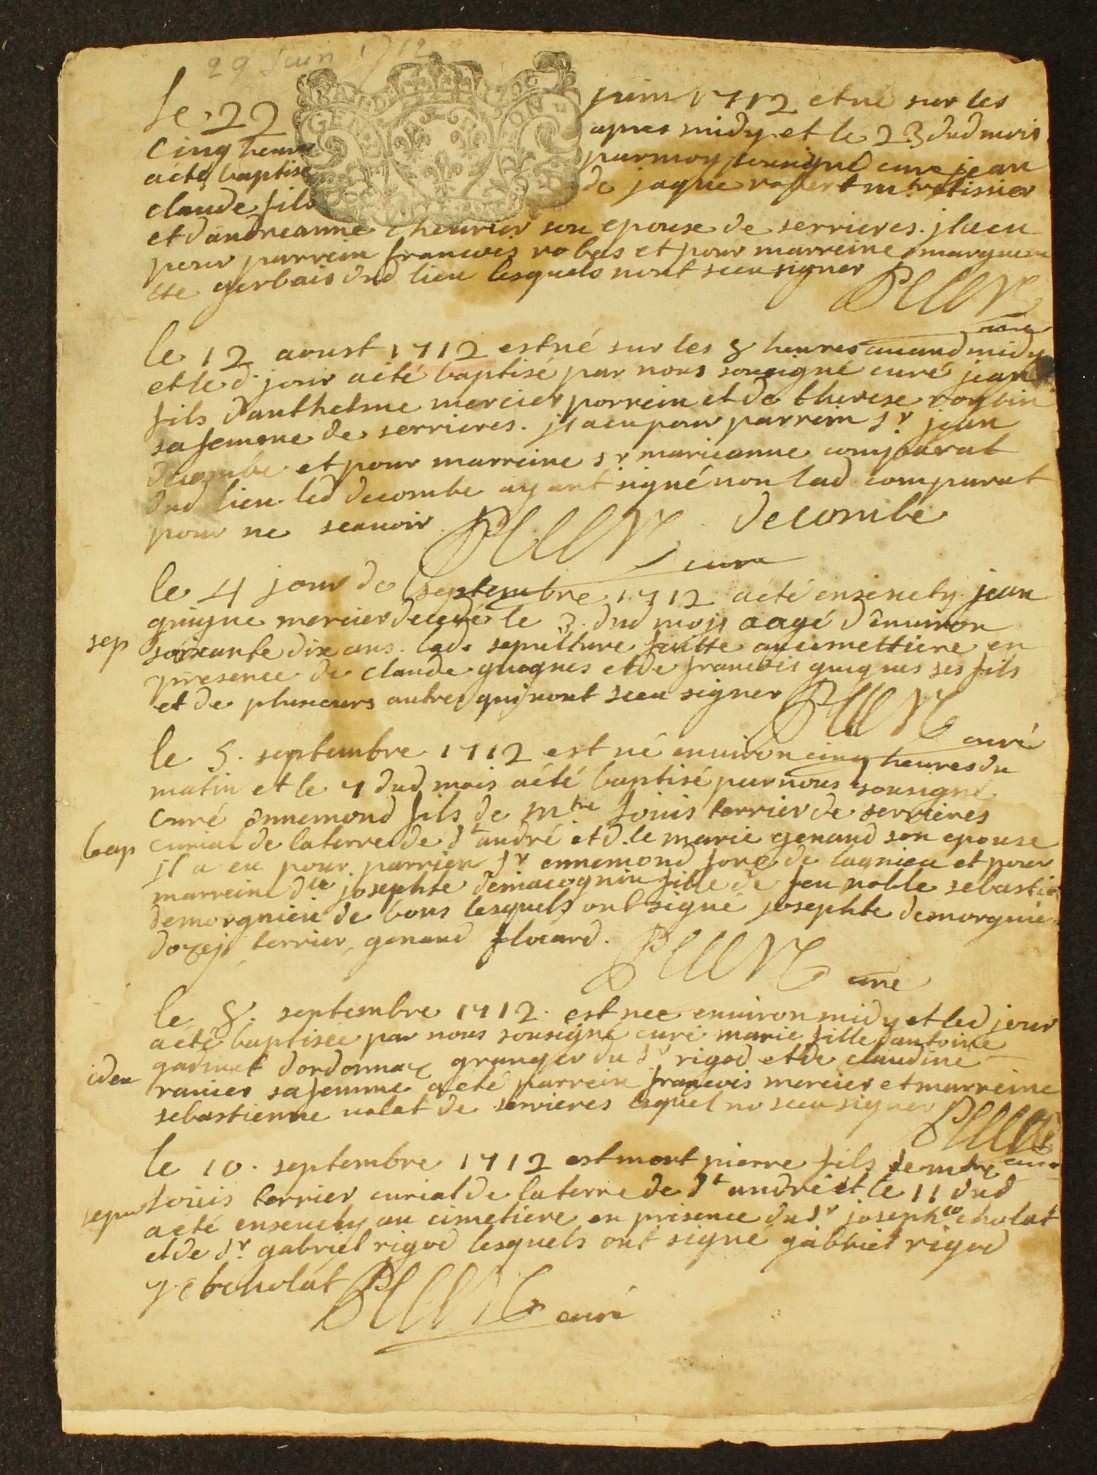 29 Juin 1712
Le 22 juin 1712 est né sur les
cinq heures apres midy et le 23 dud mois
a été baptisé par moy soussigné curé jean
claude fils de jaque
et dandreanne son epouse de serrieres. il a eu
pour parrein francois et pour marreine margueri
tte gerbais dud lieu lesquels nont sceu signer
curé
le 12 aoust 1712 est né sur les 8 heures auand midy
et le d. jour a été baptisé par nous soussigné curé jean
fils d'anthelme mercier porrein et de therese
sa femme de serrieres. il a eu pour parrein Sr jean
decombe et pour marreine Sr marieanne comparat
dud lieu led decombe ayant signé non lad comparat
pour ne scauoir decombe
curé
le 4 jour de septembre 1712 a été enseuely jean
guigue mercier decedé le 3 dud mois aagé d'enuiron
sep soixante dix ans. lad. sepulture faitte au cimettiere en
presence de claude guigues et de francois guigues ses fils
et de plusieurs autres qui nont sceu signer
curé
le 5. septembre 1712 est né enuiron cinq heures du
matin et le 7 dud mois a été baptisé par nous soussigné
curé ennemond fils de mtre Louis terrier de serrieres
bap curial de la terre de St andré et d.lle marie genand son epouse
il a eu pour parrien Sr ennemond de lagnieu et pour
marreine dlle josephte fille de feu noble sebastien
demorgnieu de bons lesquels ont signé josephte demorgnieu
terrier, genand
curé
le 8. septembre 1712. est née enuiron midy et led jour
a été baptisée par nous soussigné curé marie fille dantoine
idem dordonnaz granger du Sr rigod et de claudine
sa femme a été parrein francois mercier et marreine
sebastienne ualat de serrieres lesquel no sceu signer
curé
le 10. septembre 1712 est mort pierre fils de mtre
Louis terrier curial de la terre de St andré et le 11 dud
sepu a été enseuely au cimetiere en presence du Sr joseph cholat
et de Sr gabriel rigod lesquels ont signé gabriel rigod
cholat
curé